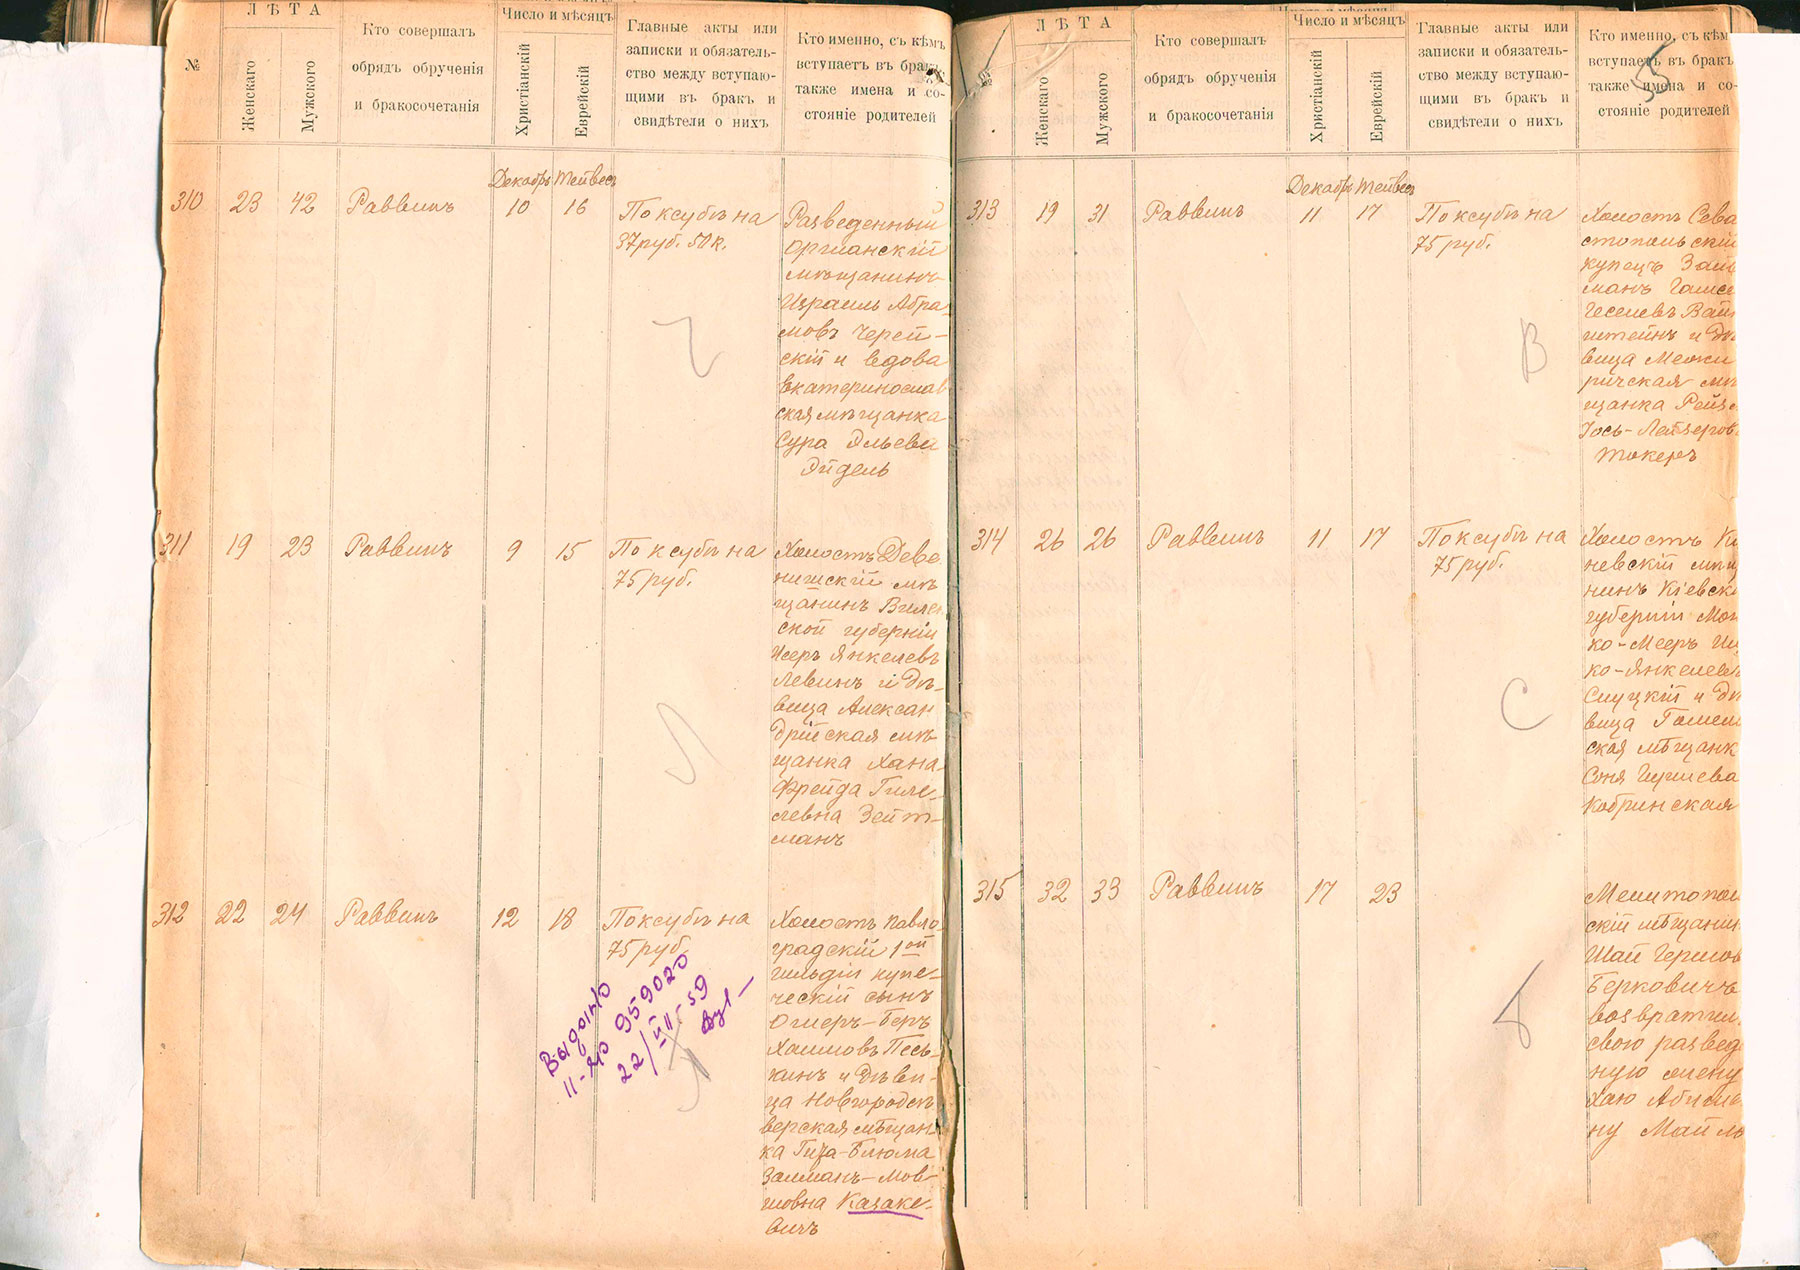 ЛѢТА
Число и мѣсяцъ
№
Женскаго
Мужского
Кто совершалъ
обрядъ обрученія
и бракосочетанія
Христіанскій
Еврейскій
Главные акты или
записки и обязатель-
ство между вступаю-
щими въ бракъ и
свидѣтели о нихъ
Кто именно, съ кѣмъ
вступаетъ въ бракъ,
также имена и со-
стояніе родителей
Декабрь Тейвесъ
310 23 42 Раввинъ 10 16
По ксубѣ на
37 руб. 50 к.
Разведенный
Оргіанскій
мѣщанинъ
Израиль Абра-
мовъ Черей-
скій и вдова
Екатеринослав
ская мѣщанка
Сура Эльева
Эйдель
Ч
311 19 23 Раввинъ 9 15
По ксубѣ на
75 руб.
Холостъ Деве
нишскій мѣ
щанинъ Вилен
ской губерніи
Исеръ Янкелевъ
Левинъ и дѣ-
вица Алексан
дрійская мѣ
щанка Хана-
Фрейда Гиле-
левна Зейт-
манъ
Л
312 22 24 Раввинъ 12 18
По ксубѣ на
75 руб.
Холостъ Павло-
градскій 1ой
гильдіи купе-
ческій сынъ
Ошеръ-Беръ
Хаимовъ Песь-
кинъ и дѣви-
ца Новгородсѣ
верская мѣщан
ка Гита-Блюма
Залманъ-Мов-
шовна Казаке-
вичъ
Выдано
II-ЯЮ 959020
22/VIII-59
ЛѢТА
Число и мѣсяцъ
№
Женскаго
Мужского
Кто совершалъ
обрядъ обрученія
и бракосочетанія
Христіанскій
Еврейскій
Главные акты или
записки и обязатель-
ство между вступаю-
щими въ бракъ и
свидѣтели о нихъ
Кто именно, съ кѣмъ
вступаетъ въ бракъ
также имена и со-
стояніе родителей
Декабрь Тейвесъ
313 19 31 Раввинъ 11 17
По ксубѣ на
75 руб.
Холостъ Сева
стопольскій
купецъ Заль
манъ
Геселевъ Вайн
штейнъ и дѣ
вица Межи
ричская мѣ
щанка Рейзя
Іось-Лейзеров
Токеръ
В
314 26 26 Раввинъ 11 17
По ксубѣ на
75 руб.
Холостъ
невскій мѣщ
нинъ Кіевск
губерніи Мош
ко-Мееръ Иц
ко-Янкелев
Слуцкій и дѣ
вица Гомель
ская мѣщанк
Соня Гиршева
Кобринская
С
315 32 33 Раввинъ 17 23
Мелитополь
скій мѣщанин
Шая Гершов
Берковичъ
возвратил
свою разведе
ную жену
Хаю Абраме
ну Майль
Б